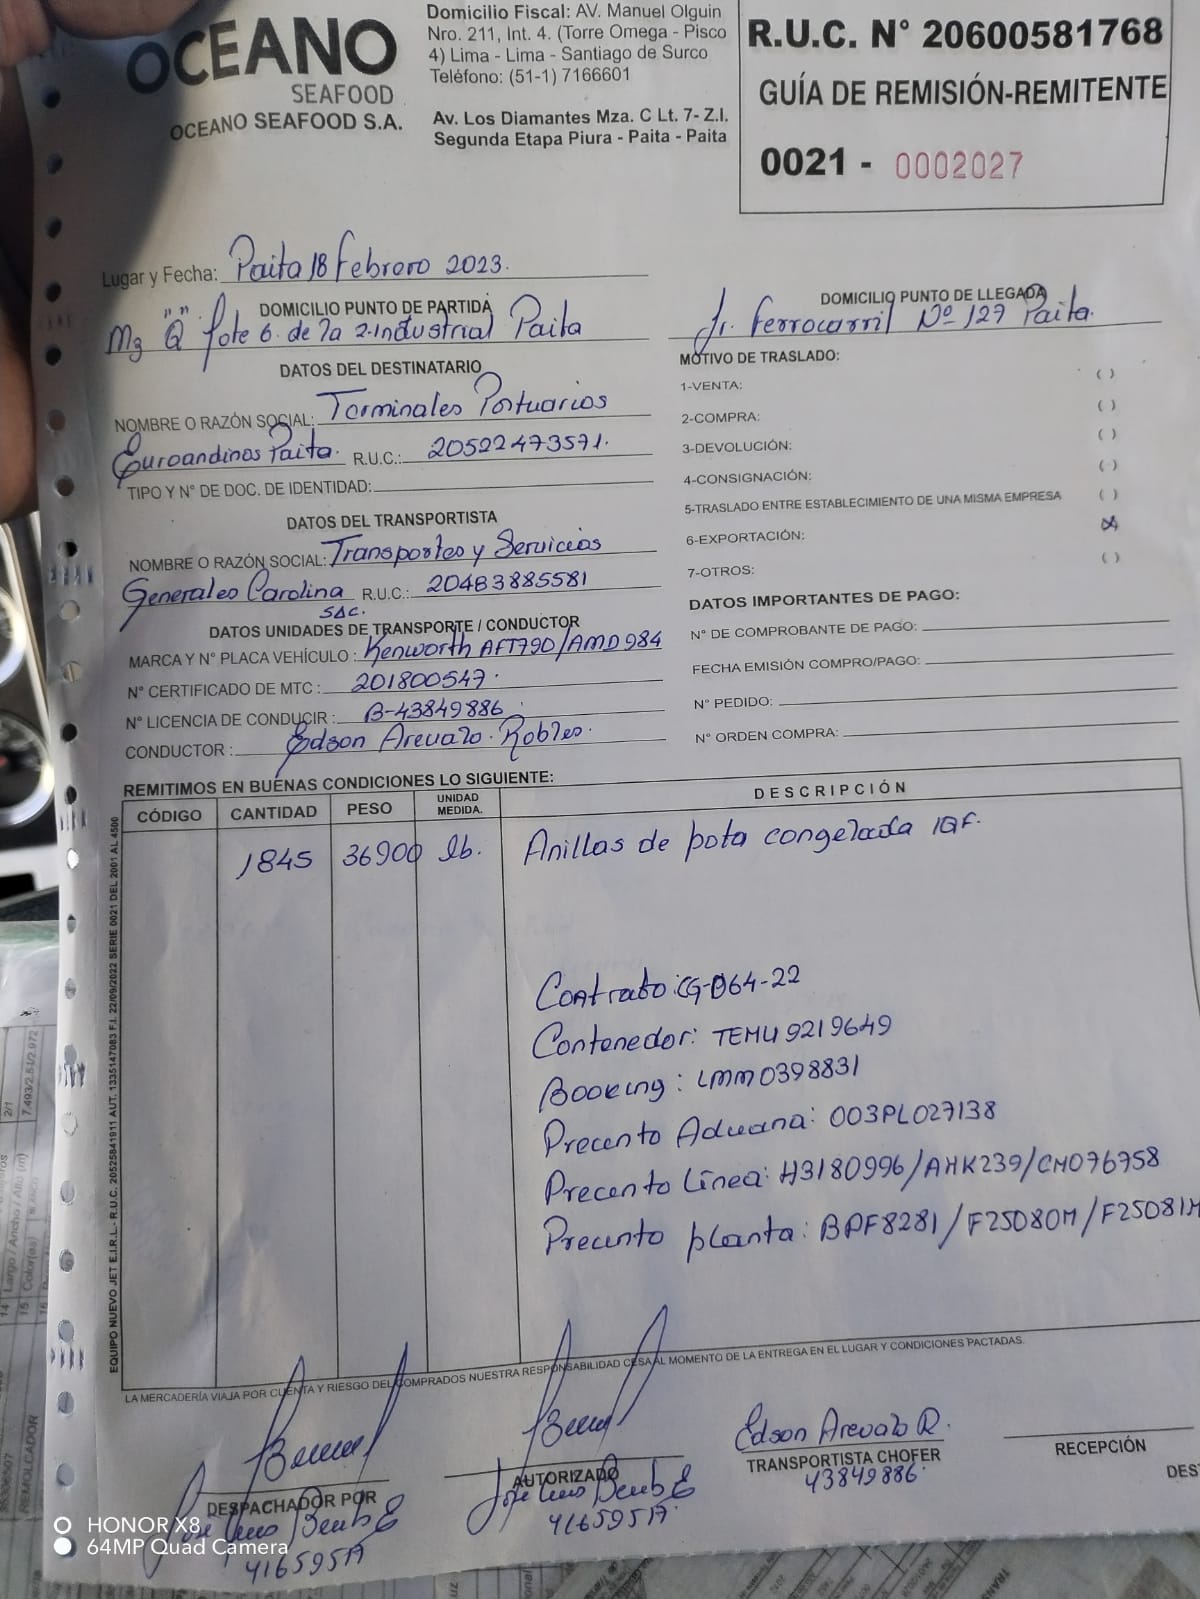 OCEANO
SEAFOOD
OCEANO SEAFOOD S.A.
Domicilio Fiscal: AV. Manuel Olguin
Nro. 211, Int. 4. (Torre Omega - Pisco
4) Lima - Lima - Santiago de Surco
Teléfono: (51-1) 7166601
Av. Los Diamantes Mza. C Lt. 7- Z.I.
Segunda Etapa Piura - Paita - Paita
R.U.C. N° 20600581768
GUÍA DE REMISIÓN-REMITENTE
0021 - 0002027
Lugar y Fecha: Paita 18 Febrero 2023.
DOMICILIO PUNTO DE PARTIDA
Mz "Q" Lote 6. de la Z.Industrial Paita
DOMICILIO PUNTO DE LLEGADA
Jr. Ferrocarril Nº 127 Paita.
DATOS DEL DESTINATARIO
NOMBRE O RAZÓN SOCIAL: Terminales Portuarios
Euroandinos Paita. R.U.C.: 20522473571.
TIPO Y N° DE DOC. DE IDENTIDAD:
DATOS DEL TRANSPORTISTA
NOMBRE O RAZÓN SOCIAL: Transportes y Servicios
Generales Carolina R.U.C.: 20483885581
SAC.
DATOS UNIDADES DE TRANSPORTE / CONDUCTOR
MARCA Y N° PLACA VEHÍCULO : Kenworth AFT790/AMD984
N° CERTIFICADO DE MTC : 201800547.
N° LICENCIA DE CONDUCIR : B-43849886
CONDUCTOR : Edson Arevalo Robles.
MOTIVO DE TRASLADO:
1-VENTA: ( )
2-COMPRA: ( )
3-DEVOLUCIÓN: ( )
4-CONSIGNACIÓN: ( )
5-TRASLADO ENTRE ESTABLECIMIENTO DE UNA MISMA EMPRESA ( )
6-EXPORTACIÓN: (X)
7-OTROS: ( )
DATOS IMPORTANTES DE PAGO:
N° DE COMPROBANTE DE PAGO:
FECHA EMISIÓN COMPRO/PAGO:
N° PEDIDO:
N° ORDEN COMPRA:
REMITIMOS EN BUENAS CONDICIONES LO SIGUIENTE:
CÓDIGO CANTIDAD PESO UNIDAD MEDIDA. DESCRIPCIÓN
1845 36900 lb. Anillas de pota congelada IQF.
Contrato: CG-064-22
Contenedor: TEMU 9219649
Booking : LMM0398831
Precinto Aduana: 003PL027138
Precinto Línea: H3180996/AHK239/CM076758
Precinto planta: BPF8281/F25080M/F25081M
EQUIPO NUEVO JET E.I.R.L.- R.U.C. 20525841911 AUT. 1335147083 F.I. 22/09/2022 SERIE 0021 DEL 2001 AL 4500
LA MERCADERÍA VIAJA POR CUENTA Y RIESGO DEL COMPRADOS NUESTRA RESPONSABILIDAD CESA AL MOMENTO DE LA ENTREGA EN EL LUGAR Y CONDICIONES PACTADAS.
DESPACHADOR POR
41659517
AUTORIZADO
41659517
Edson Arevalo R.
TRANSPORTISTA CHOFER
43849886.
RECEPCIÓN
DEST
HONOR X8
64MP Quad Camera
REMOLCADOR